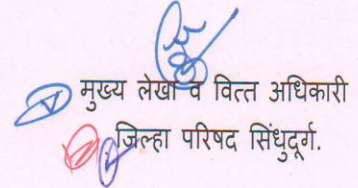 मुख्य लेखा व वित्त अधिकारी
जिल्हा परिषद सिंधुदूर्ग.